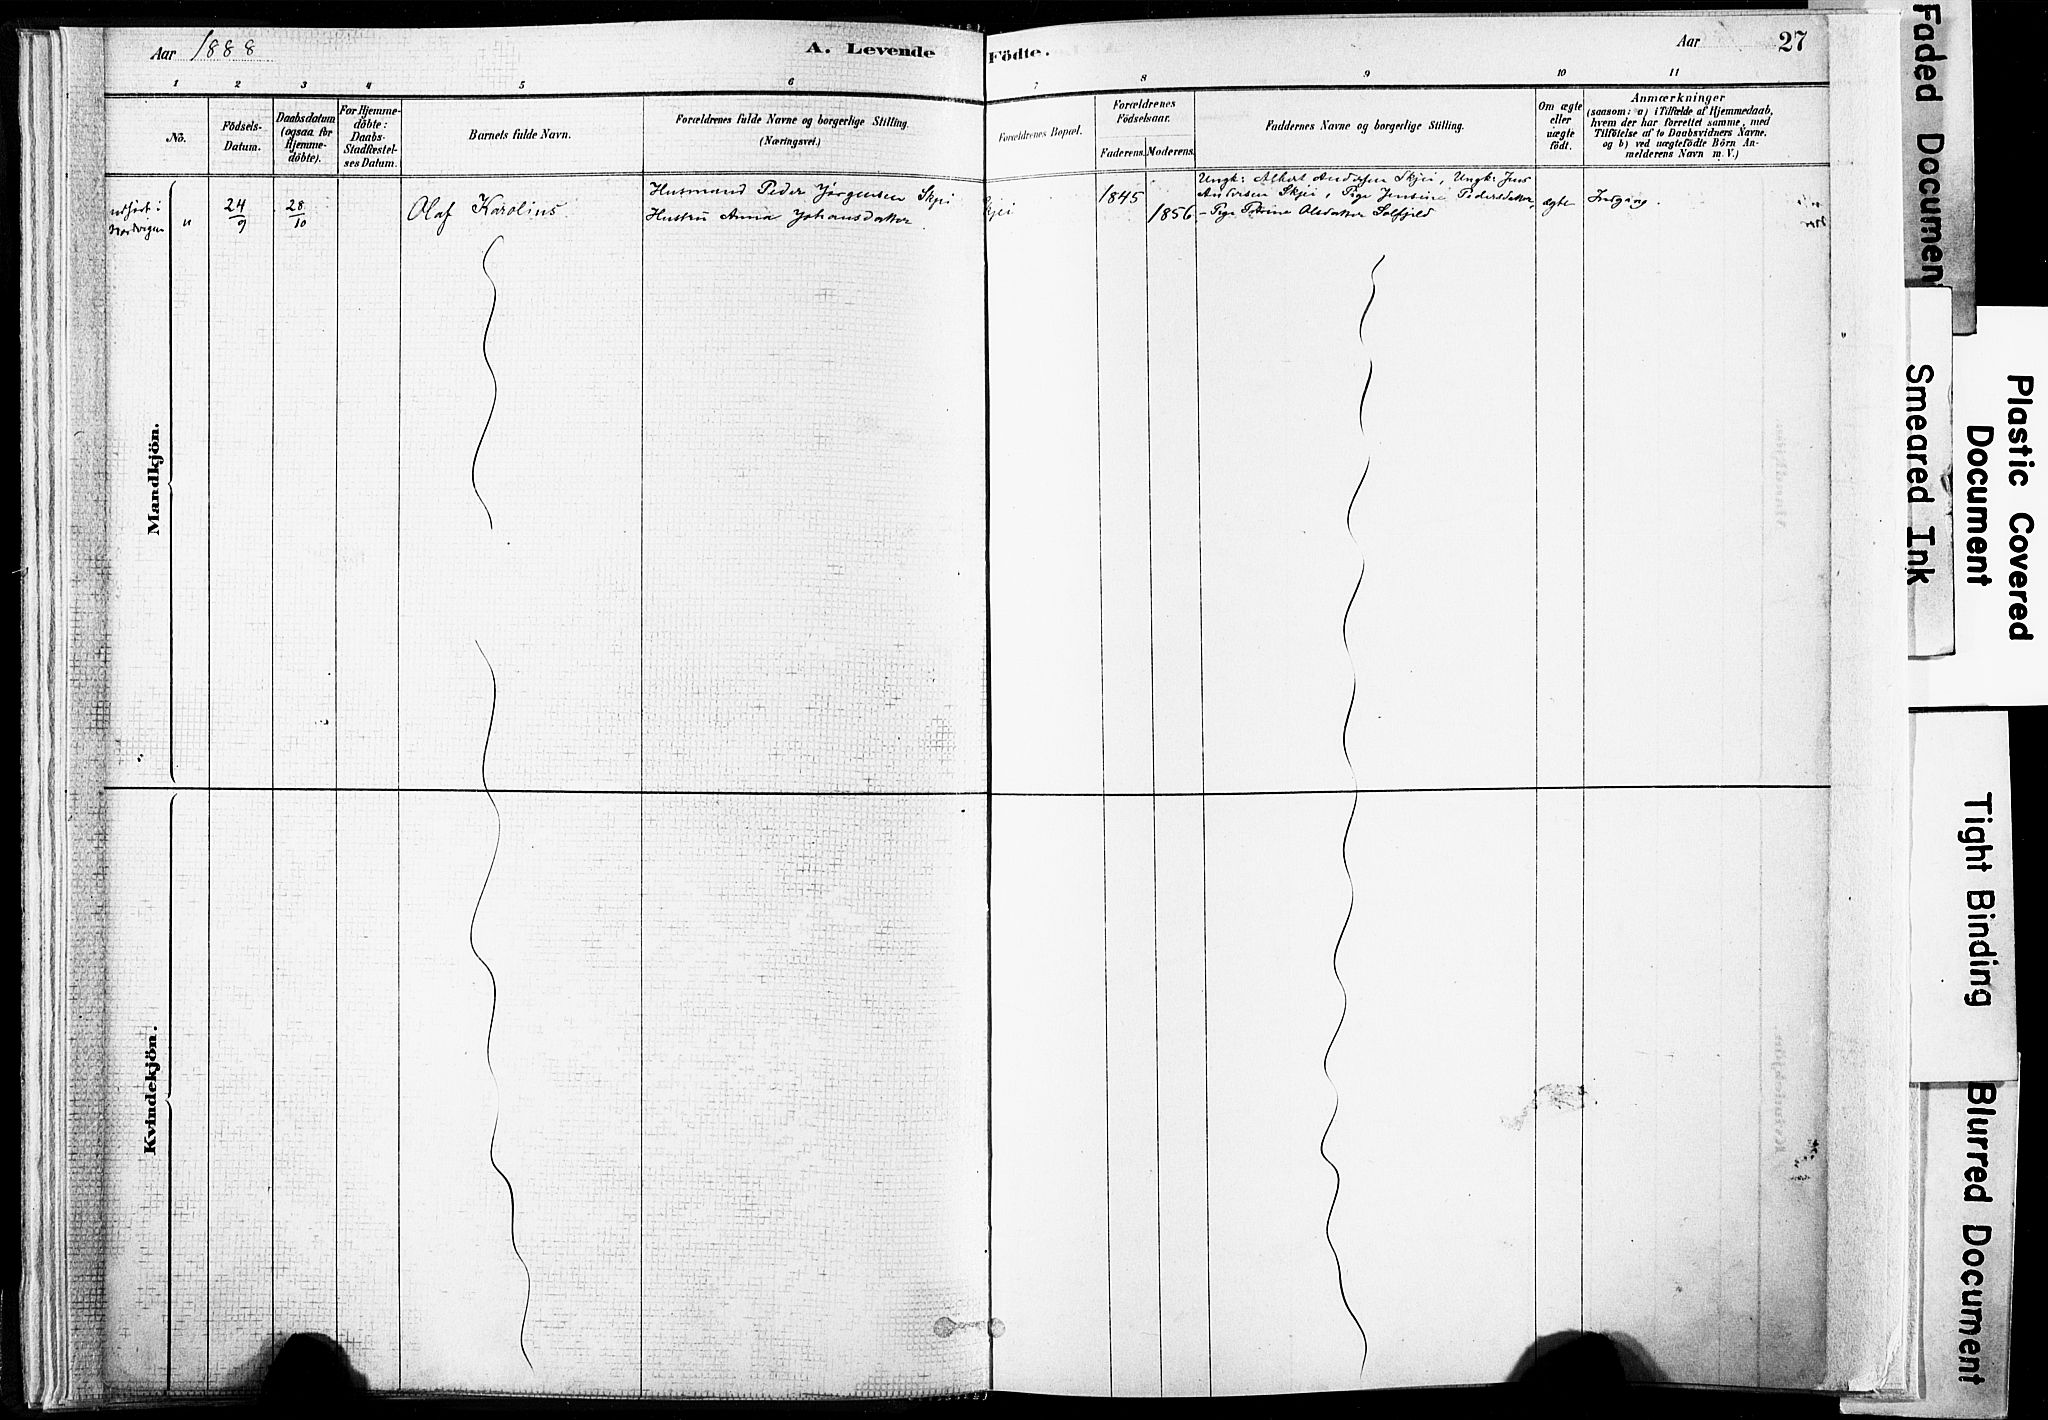 Aar 1888
A. Levende Födte.
Aar
27
1 2 3 4 5 6 7 8 9 10 11
No.
Födsels-
Datum.
Daabsdatum
(ogsaa for
Hjemme-
döbte).
For Hjemme-
döbte:
Daabs-
Stadfæstel-
ses Datum.
Barnets fulde Navn.
Forældrenes fulde Navne og borgerlige Stilling.
(Næringsvei.)
Forældrenes Bopæl.
Forældrenes
Födselsaar.
Faderens.
Moderens.
Faddernes Navne og borgerlige Stilling.
Om ægte
eller
uægte
födt.
Anmærkninger
(saasom: a) i Tilfælde af Hjemmedaab,
hvem der har forrettet samme, med
Tilföielse af to Daabsvidners Navne,
og b) ved uægtefödte Börn An-
melderens Navn m. V.)
Mandkjön.
indført i
"
24/9
28/10
Olaf Karolius.
Husmand Peder Jørgensen Skjei
Hustru Anna Johansdatter
Skjei
1845
1856
Ungk: Albert Andersen Skjei, Ungk: Jens
Andersen Skjei, Pige Jensine Pedersdatter,
- Pige Olsdatter
ægte
Indgang.
Kvindekjön.
Faded Document
Smeared Ink
Plastic Covered
Document
Tight Binding
Blurred Document